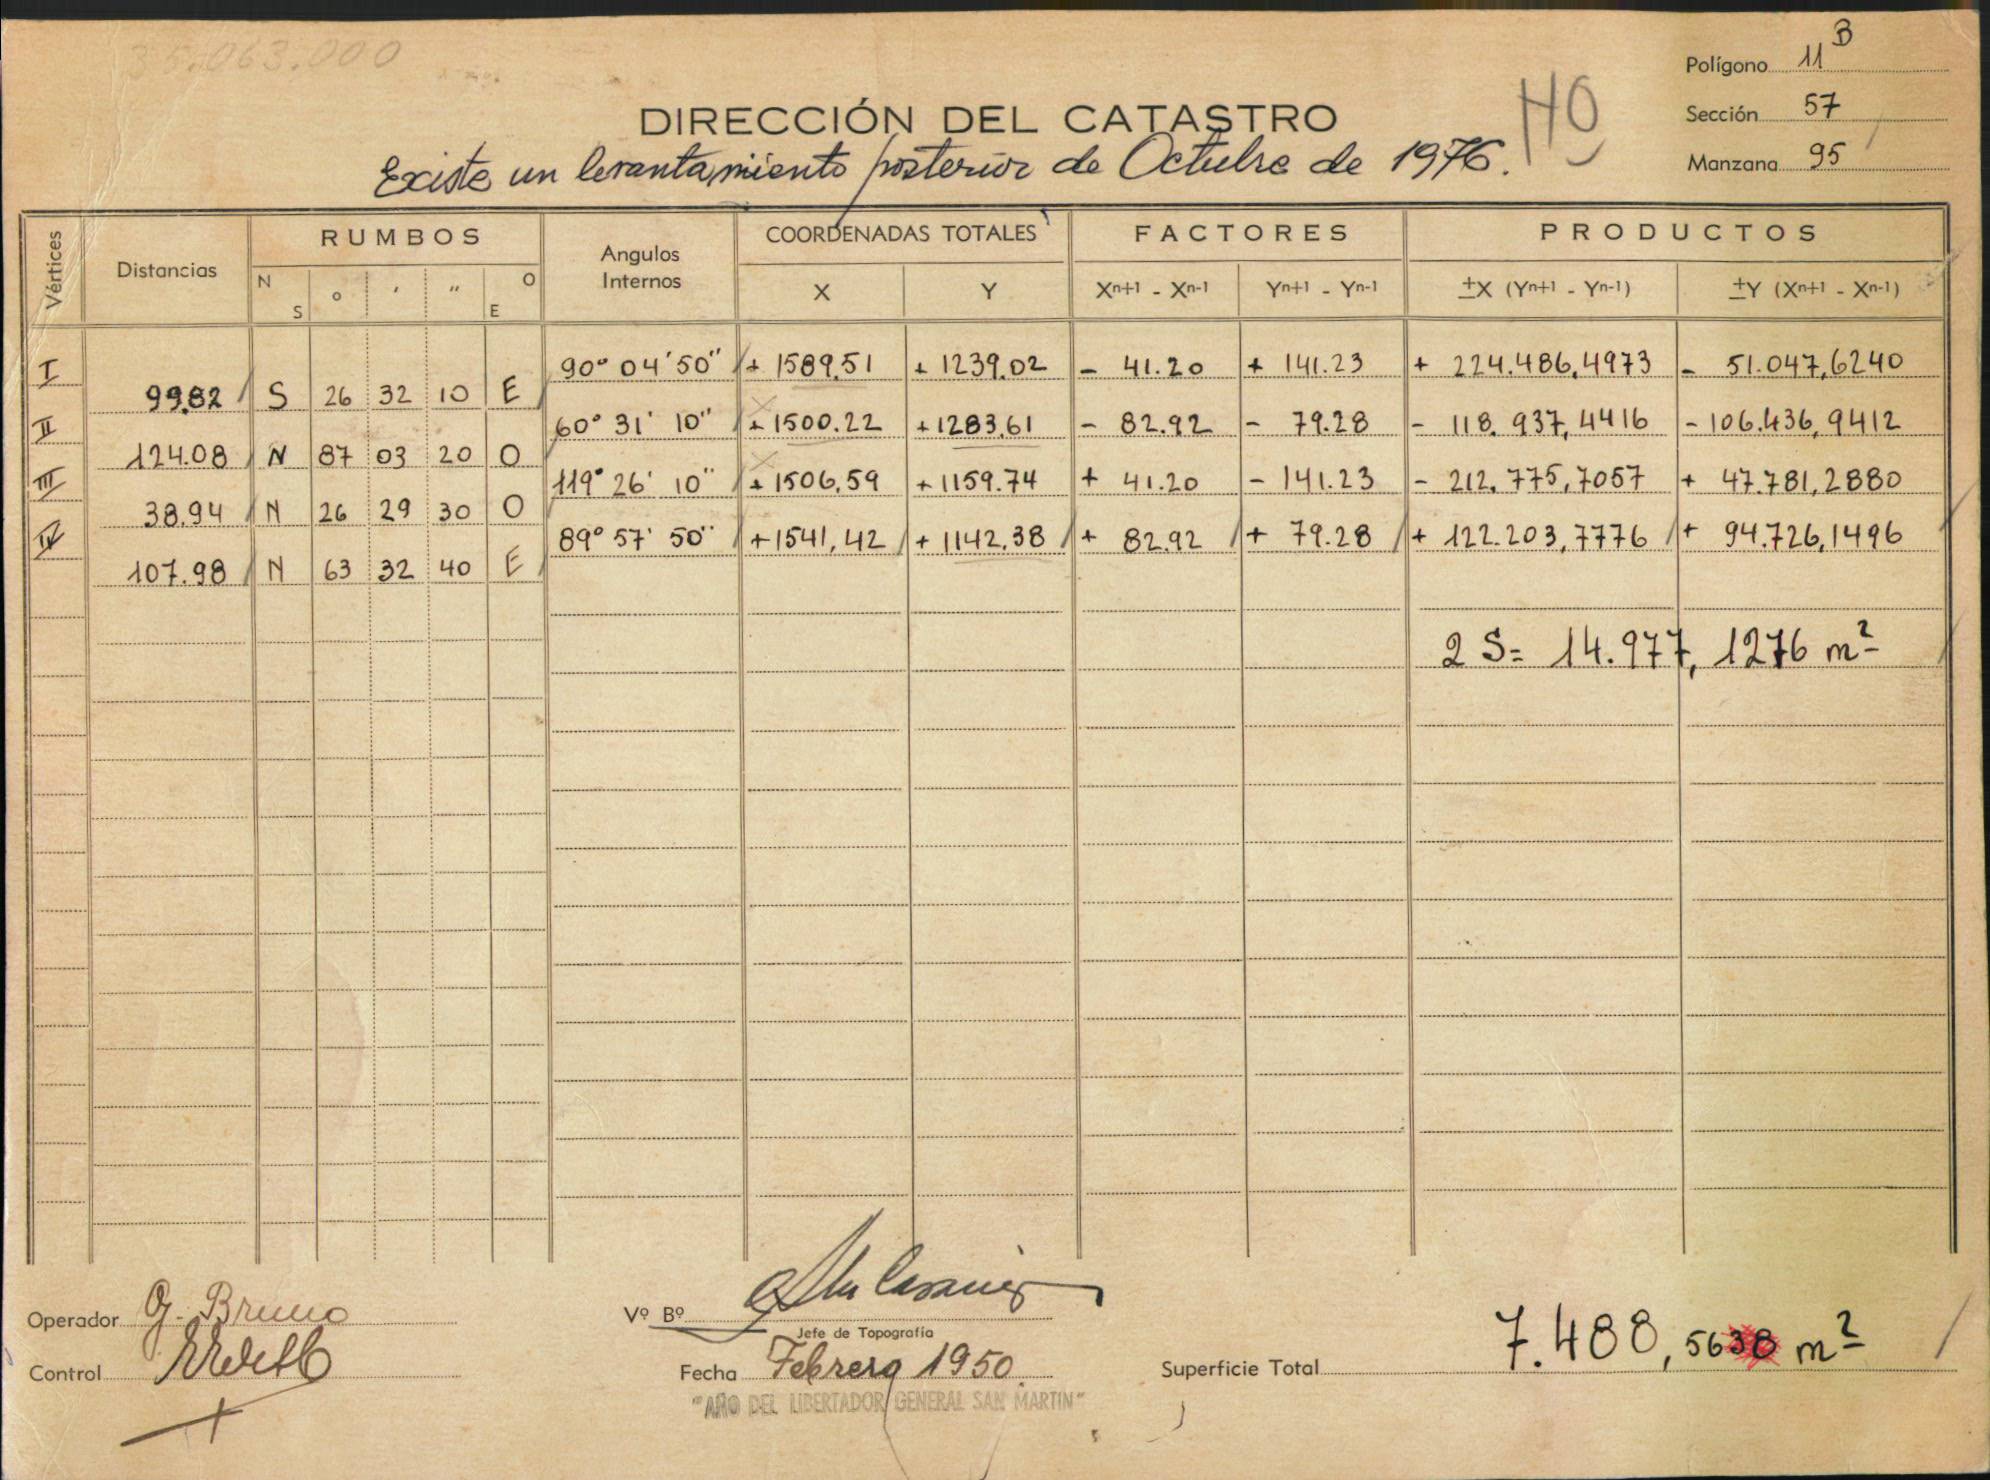 35.063.000
Polígono 11 B
DIRECCIÓN DEL CATASTRO
HO
Sección 57
Existe un levantamiento posterior de Octubre de 1976.
Manzana 95
Vértices Distancias RUMBOS Angulos Internos COORDENADAS TOTALES FACTORES PRODUCTOS
N S ° ' " O E X Y Xn+1 - Xn-1 Yn+1 - Yn-1 ±X (Yn+1 - Yn-1) ±Y (Xn+1 - Xn-1)
I 90° 04' 50" + 1589.51 + 1239.02 - 41.20 + 141.23 + 224.486,4973 - 51.047,6240
99.82 S 26 32 10 E
II 60° 31' 10" + 1500.22 + 1283.61 - 82.92 - 79.28 - 118.937,4416 - 106.436,9412
124.08 N 87 03 20 O
III 119° 26' 10" + 1506,59 + 1159.74 + 41.20 - 141.23 - 212.775,7057 + 47.781,2880
38.94 N 26 29 30 O
IV 89° 57' 50" + 1541,42 + 1142,38 + 82.92 + 79.28 + 122.203,7776 + 94.726,1496
107.98 N 63 32 40 E
2 S = 14.977,1276 m²
Operador G. Bruno
Vº Bº
Jefe de Topografía
Control
Fecha Febrero 1950
Superficie Total 7.488,5638 m²
"AÑO DEL LIBERTADOR GENERAL SAN MARTIN"